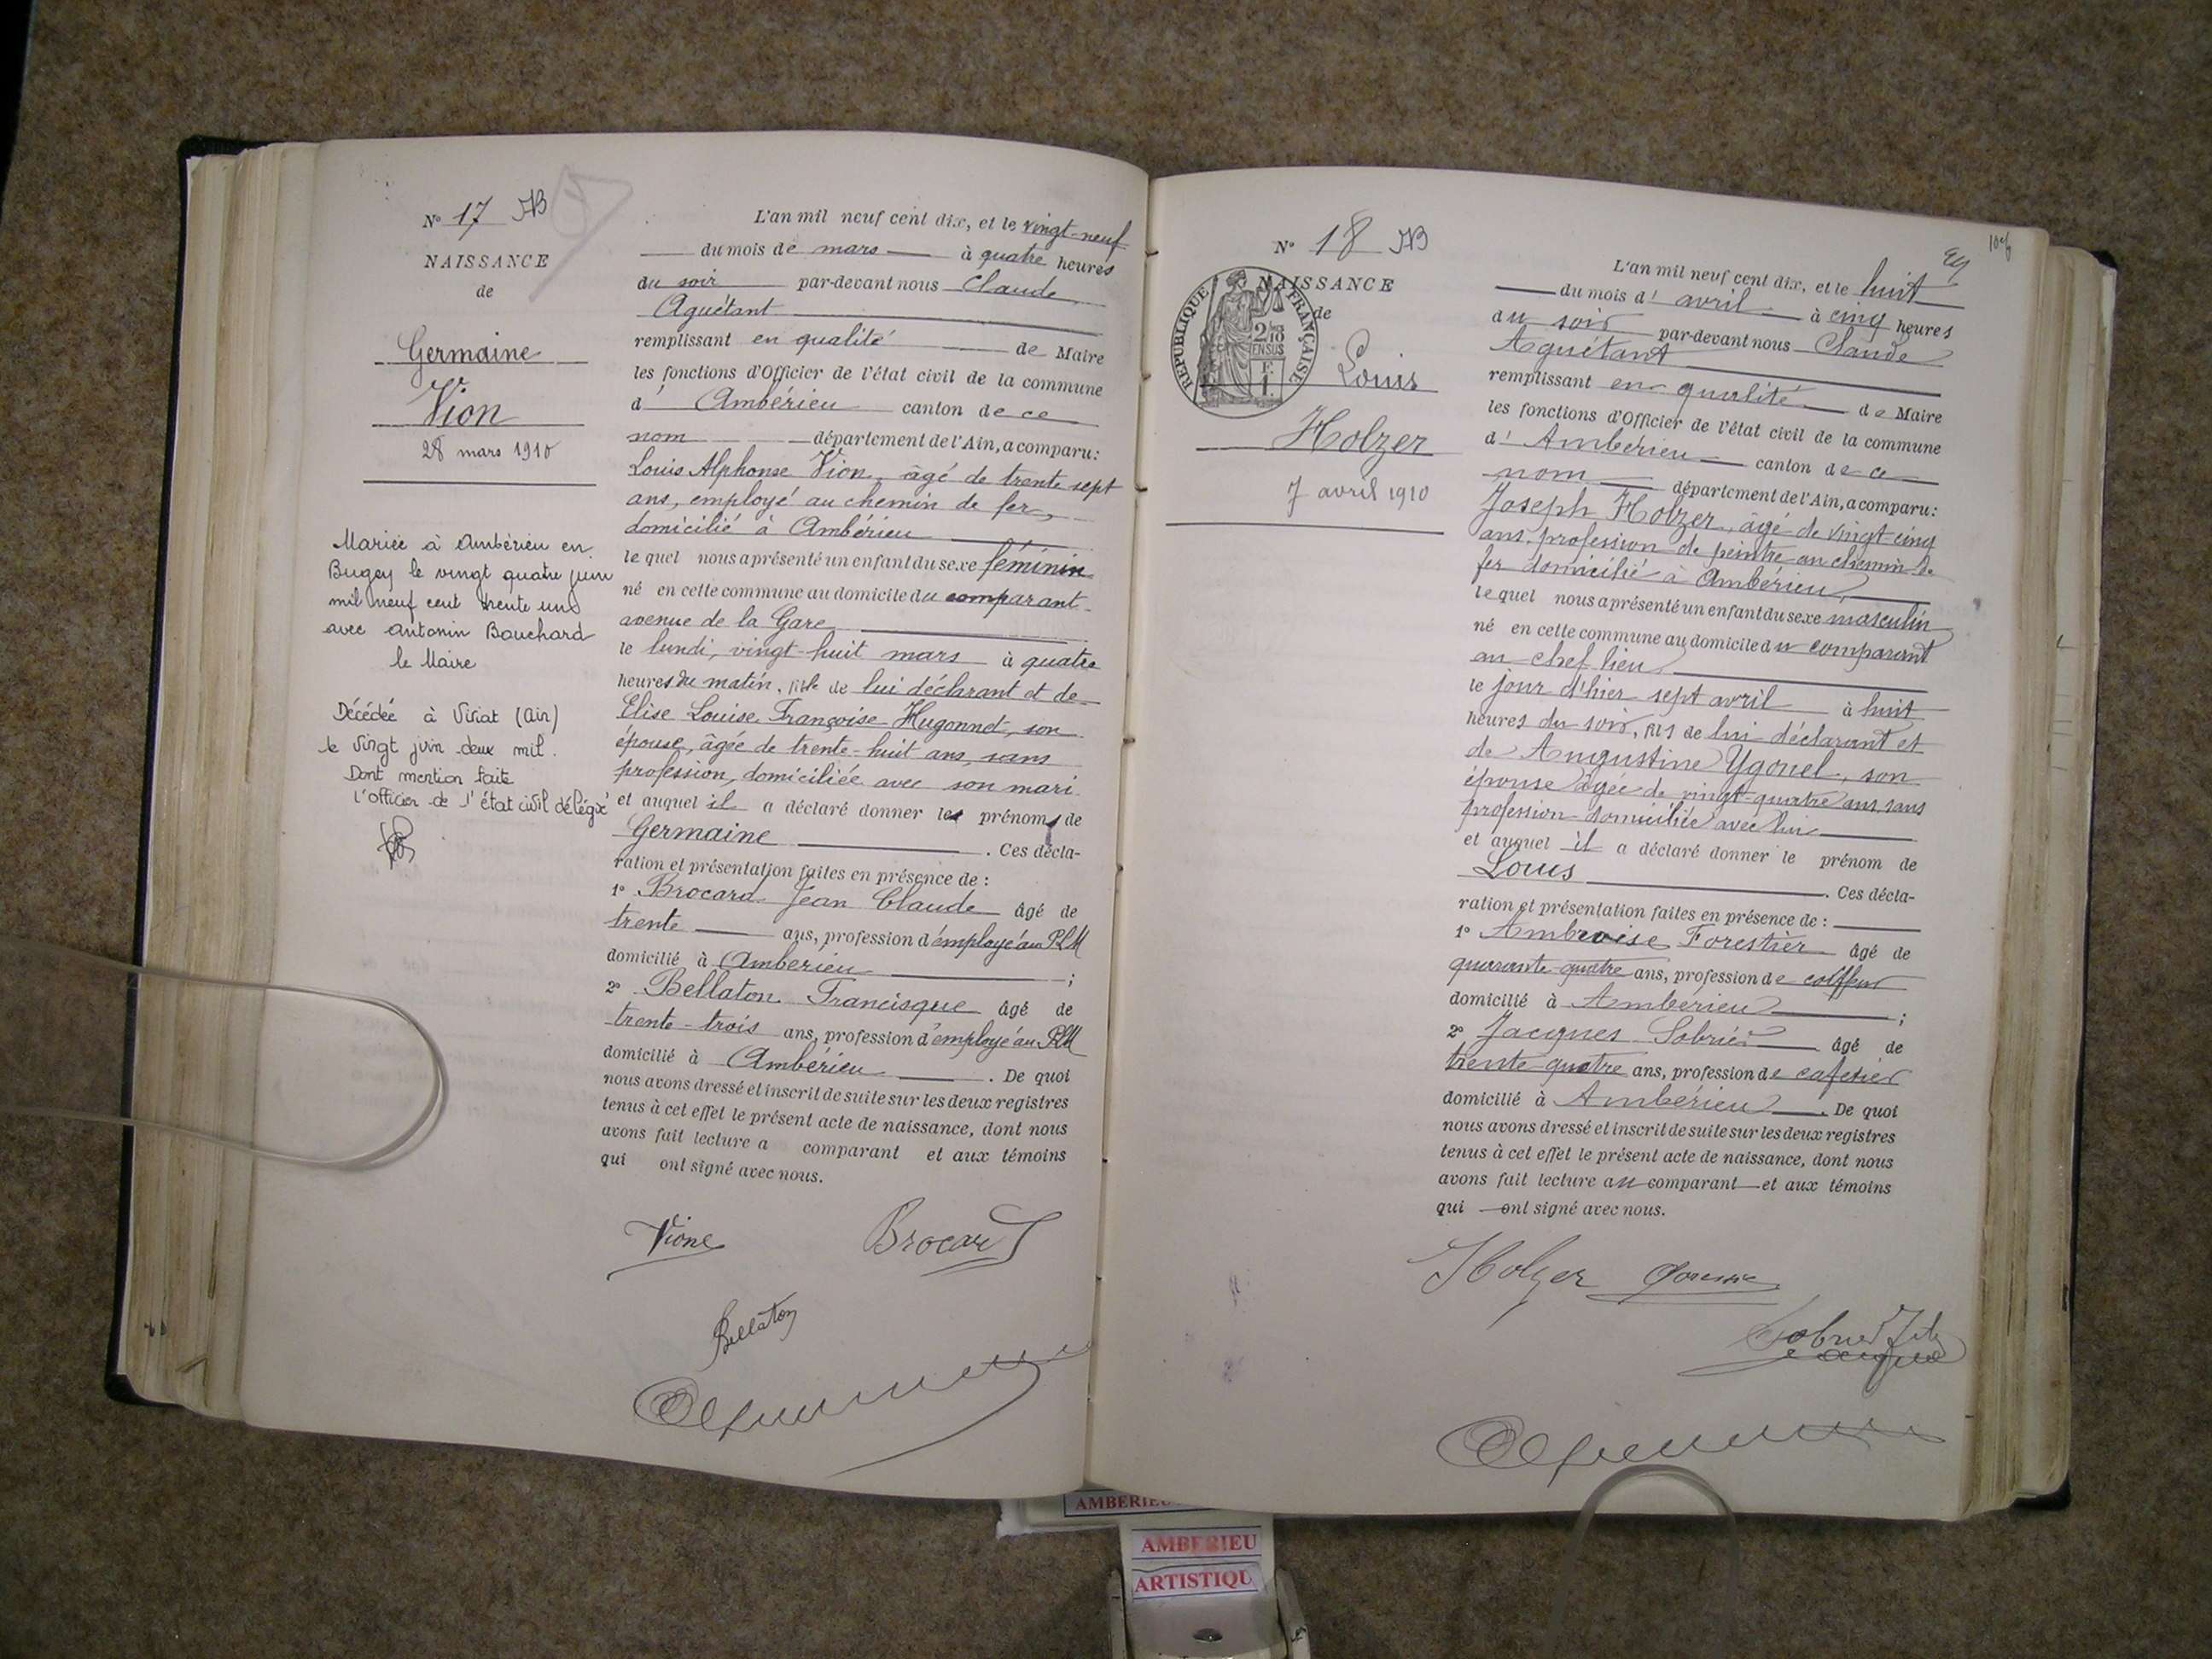 N° 17
NAISSANCE
de
Germaine
Vion
28 mars 1910
Mariée à Ambérieu en
Bugey le vingt quatre juin
mil neuf cent trente un
avec Antonin Bouchard
le Maire
Décédée à Viriat (Ain)
le vingt juin deux mil.
Dont mention faite
L'officier de l'état civil délégué
L'an mil neuf cent dix, et le vingt-neuf
du mois de mars à quatre heures
du soir par-devant nous Claude
Aguétant
remplissant en qualité de Maire
les fonctions d'Officier de l'état civil de la commune
d' Ambérieu canton de ce
nom département de l'Ain, a comparu:
Louis Alphonse Vion, âgé de trente sept
ans, employé au chemin de fer,
domicilié à Ambérieu
le quel nous a présenté un enfant du sexe féminin
né en cette commune au domicile du comparant
avenue de la Gare
le lundi, vingt-huit mars à quatre
heures du matin, fille de lui déclarant et de
Elise Louise Françoise Hugonnet, son
épouse, âgée de trente-huit ans, sans
profession, domiciliée avec son mari
et auquel il a déclaré donner les prénoms de
Germaine . Ces décla-
ration et présentation faites en présence de :
1° Brocard Jean Claude âgé de
trente ans, profession d'employé au PLM
domicilié à Ambérieu ;
2° Bellaton Francisque âgé de
trente-trois ans, profession d'employé au PLM
domicilié à Ambérieu . De quoi
nous avons dressé et inscrit de suite sur les deux registres
tenus à cet effet le présent acte de naissance, dont nous
avons fait lecture a comparant et aux témoins
qui ont signé avec nous.
Vion Brocard
Bellaton
N° 18
NAISSANCE
de
REPUBLIQUE FRANÇAISE
Louis
Holzer
7 avril 1910
L'an mil neuf cent dix, et le huit
du mois d' avril à cinq heures
du soir par-devant nous Claude
Aguétant
remplissant en qualité de Maire
les fonctions d'Officier de l'état civil de la commune
d' Ambérieu canton de ce
nom département de l'Ain, a comparu:
Joseph Holzer, âgé de vingt-cinq
ans, profession de peintre au chemin de
fer domicilié à Ambérieu,
le quel nous a présenté un enfant du sexe masculin
né en cette commune au domicile du comparant
au chef lieu
le jour d'hier sept avril à huit
heures du soir, fils de lui déclarant et
de Augustine Ygonel, son
épouse âgée de vingt-quatre ans, sans
profession domiciliée avec lui
et auquel il a déclaré donner le prénom de
Louis . Ces décla-
ration et présentation faites en présence de :
1° Ambroise Forestier âgé de
quarante-quatre ans, profession de coiffeur
domicilié à Ambérieu ;
2° Jacques Sobrier âgé de
trente-quatre ans, profession de cafetier
domicilié à Ambérieu . De quoi
nous avons dressé et inscrit de suite sur les deux registres
tenus à cet effet le présent acte de naissance, dont nous
avons fait lecture au comparant et aux témoins
qui ont signé avec nous.
Holzer
AMBERIEU
ARTISTIQU